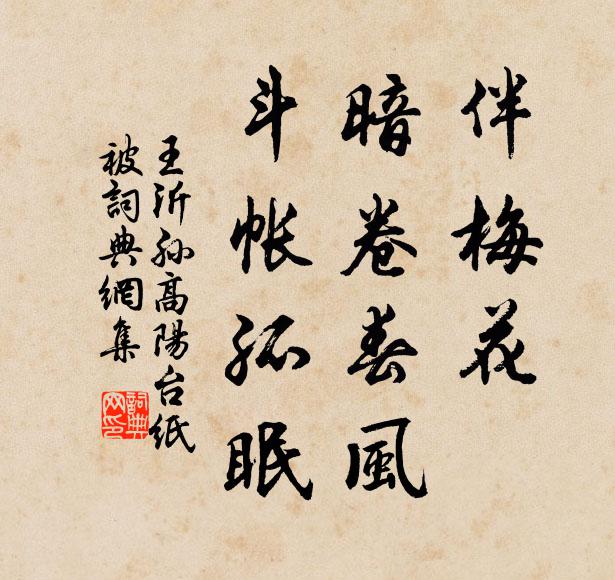 伴梅花
暗卷春風
斗帳孤眠
王沂孙高陽台紙
被詞典網集
詞典
网印